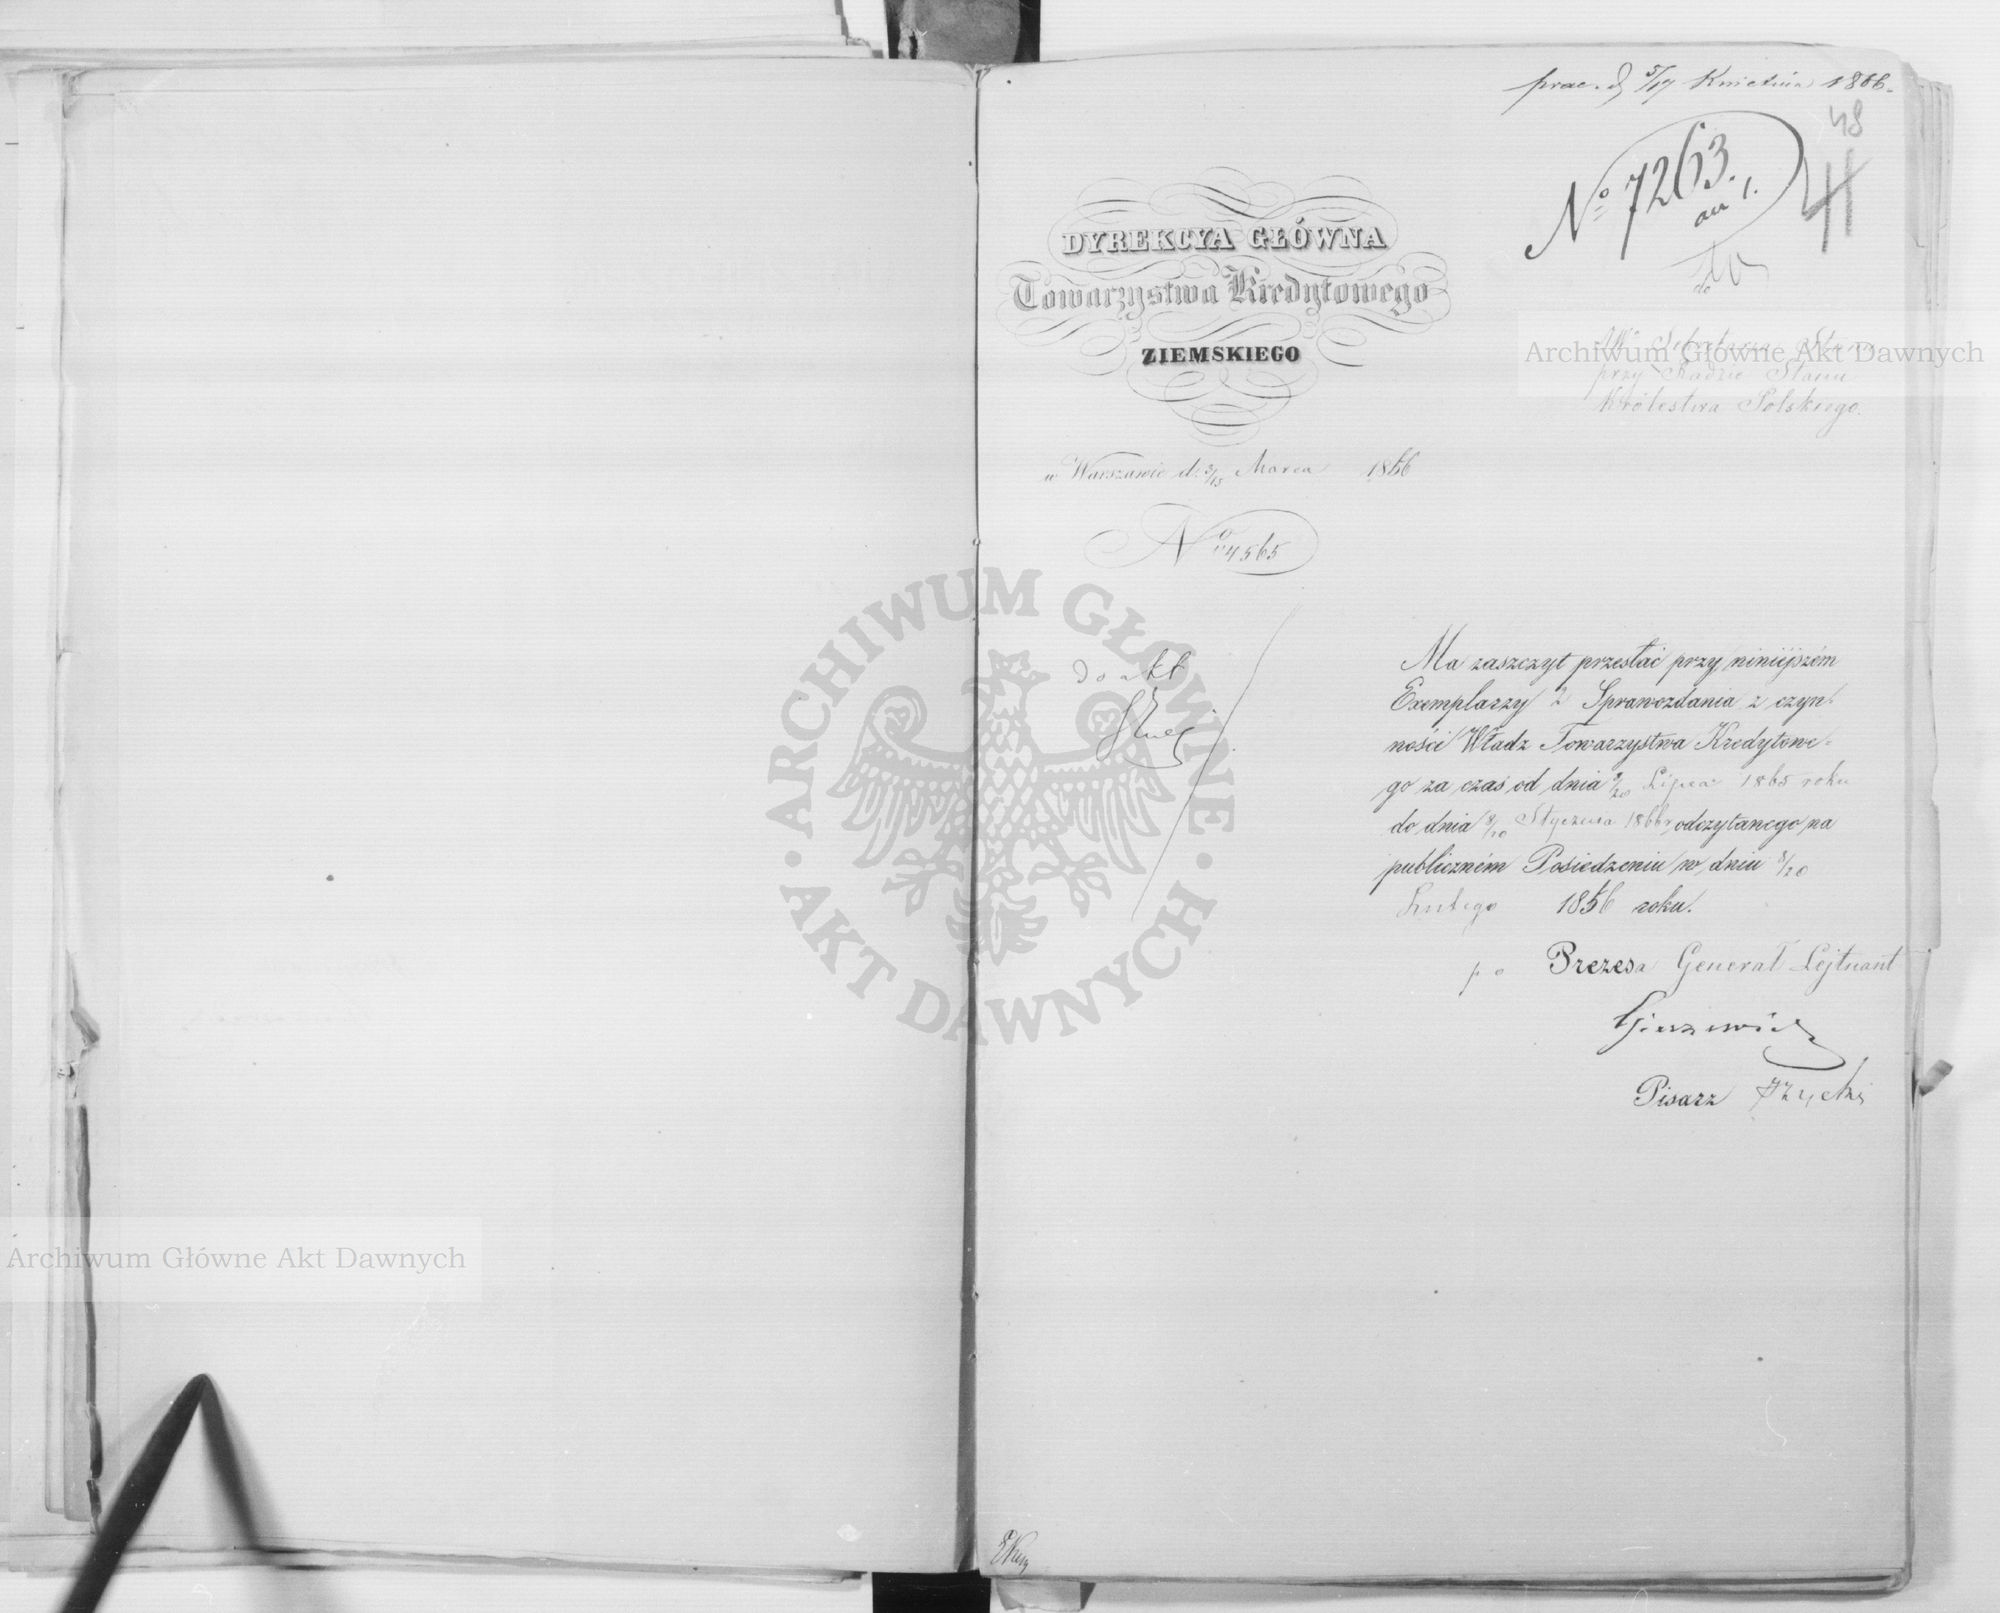 prae. d 5/17 Kwietnia 1866.
48
No 7263.
an 1.
DYREKCYA GŁÓWNA
Towarzystwa Kredytowego
ZIEMSKIEGO
do
JWo Sekretarza Stanu
przy Radzie Stanu
Królestwa Polskiego.
w Warszawie d. 3/15 Marca 1866
No 4565
Ma zaszczyt przesłać przy niniejszém
Exemplarzy 2 Sprawozdania z czyn-
ności Władz Towarzystwa Kredytowe-
go za czas od dnia 8/20 Lipca 1865 roku
do dnia 8/20 Stycznia 1866 r odczytanego na
publiczném Posiedzeniu w dniu 8/20
Lutego 1866 roku.
do akt
p o Prezesa Generał Lejtnant
Pisarz
Archiwum Główne Akt Dawnych
Archiwum Główne Akt Dawnych
ARCHIWUM GŁÓWNE · AKT DAWNYCH ·